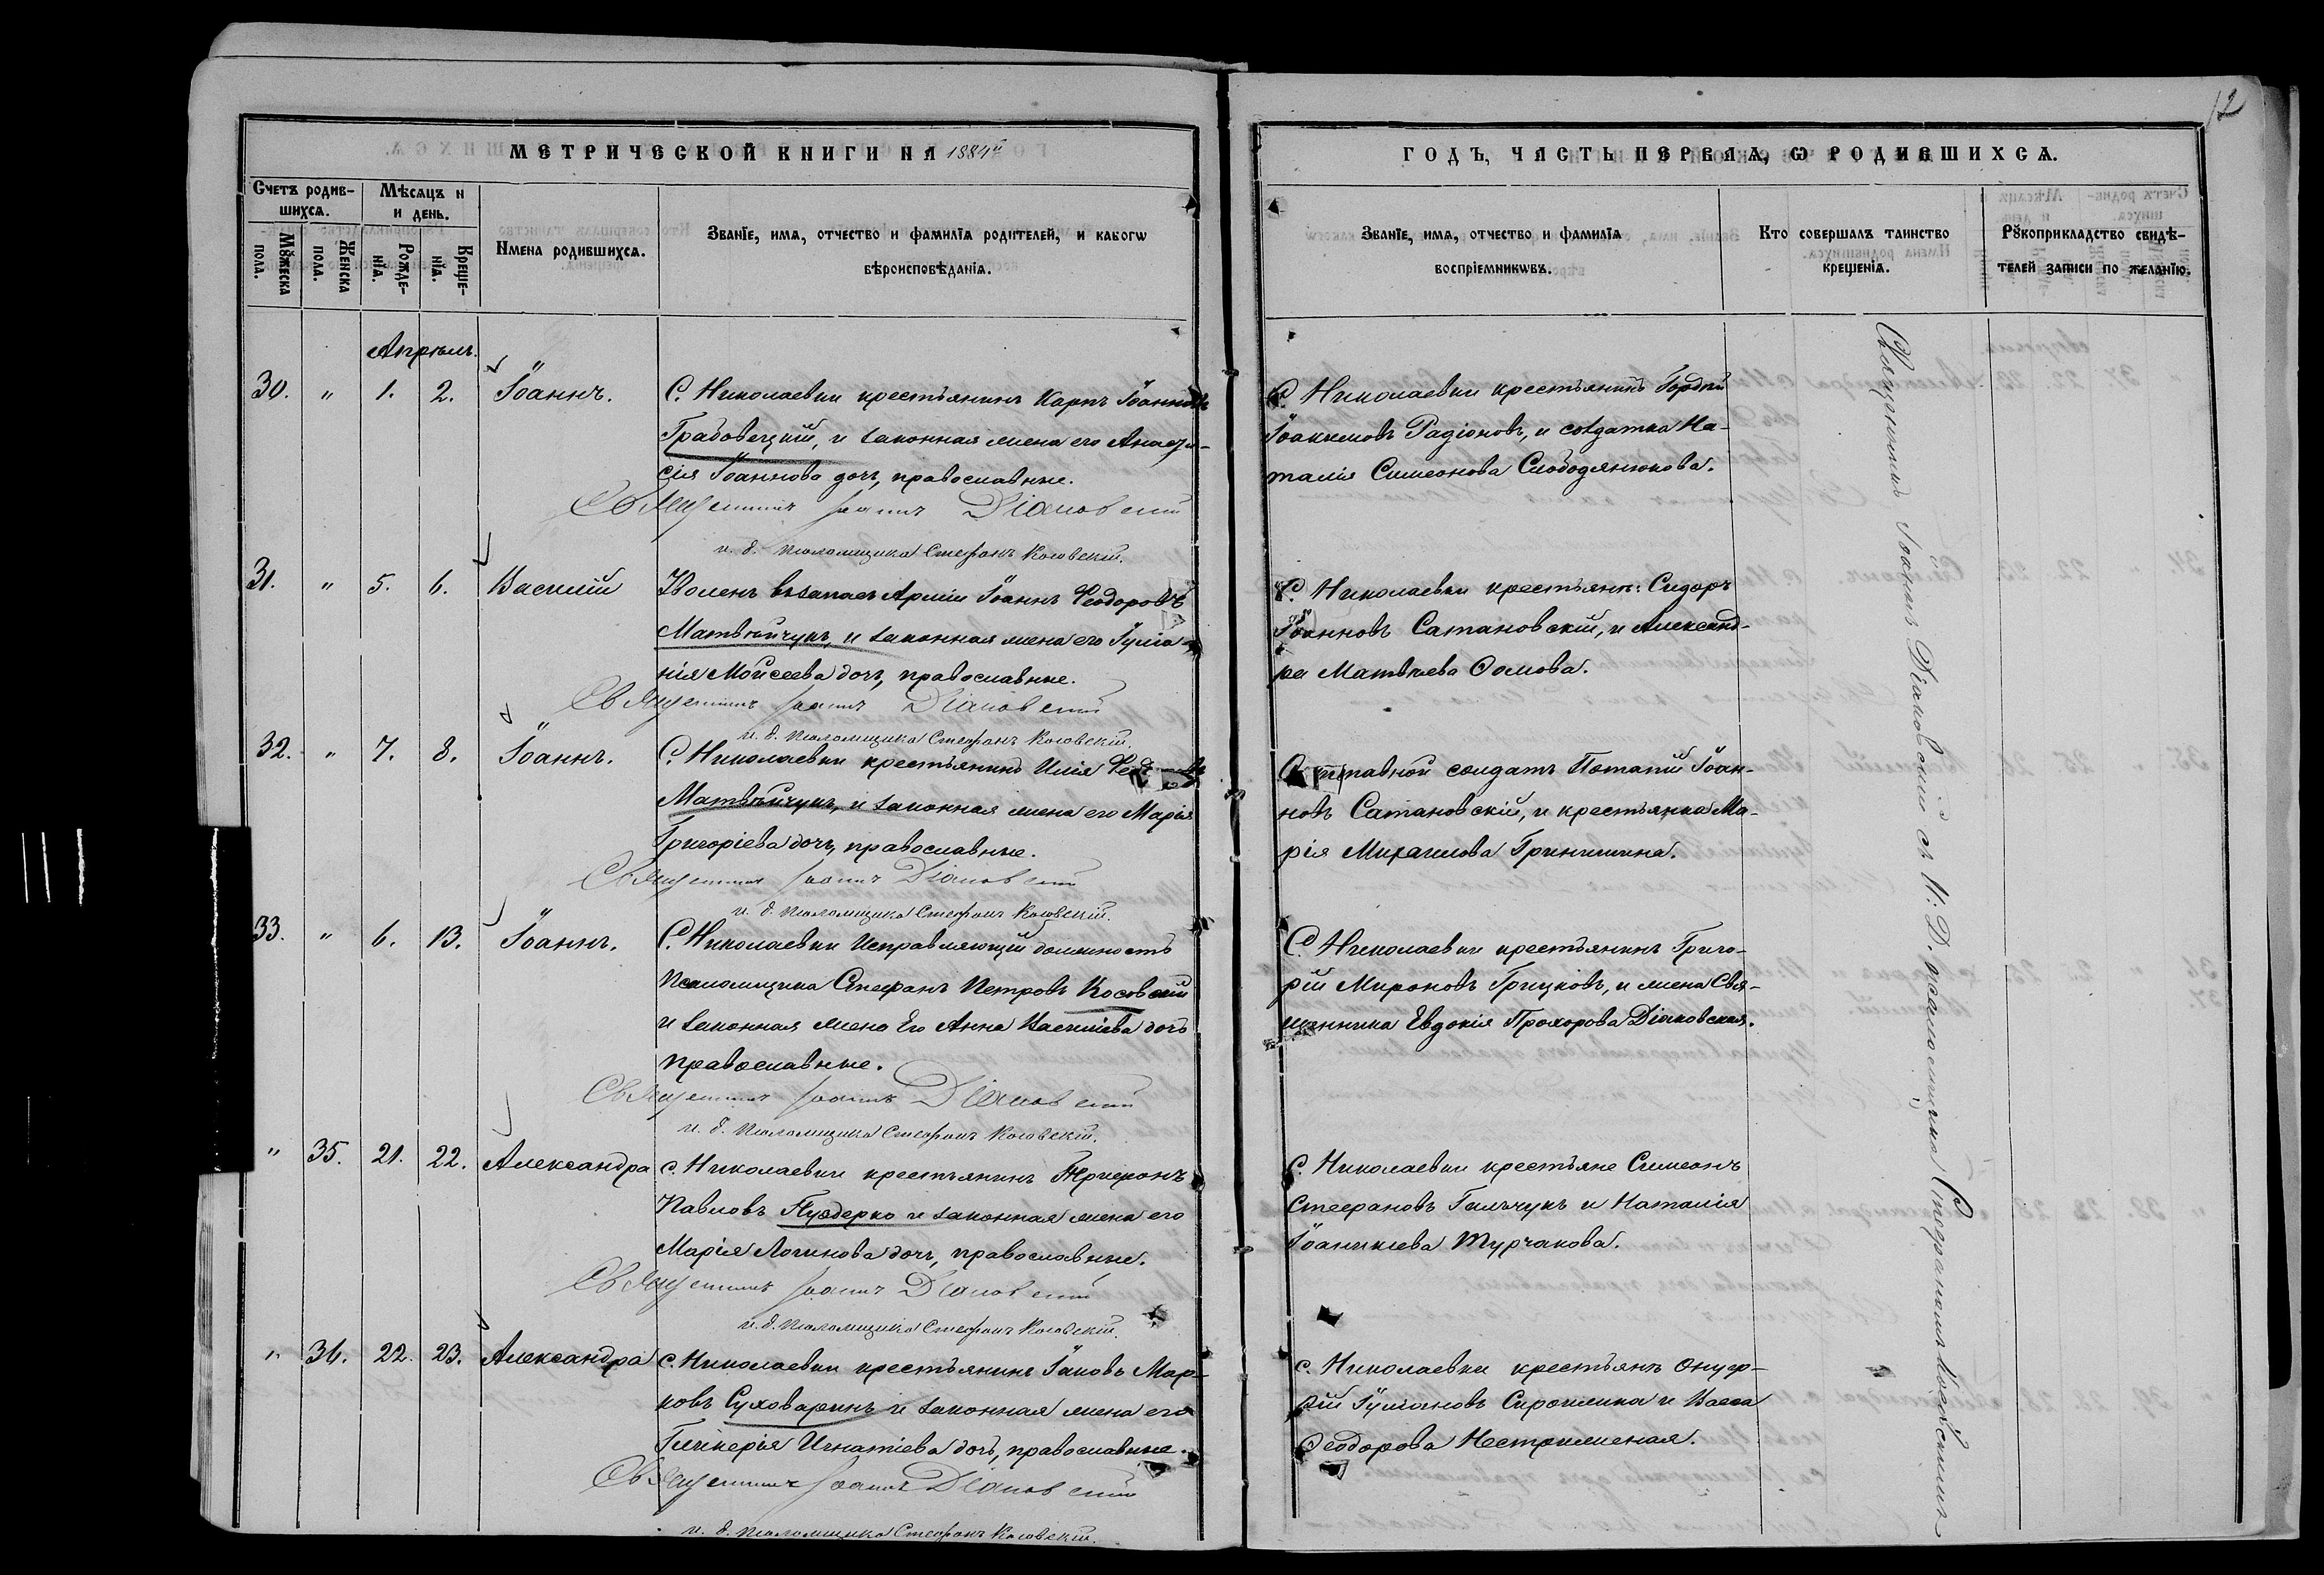 12
МЕТРИЧЕСКОЙ КНИГИ НА 1884й
ГОДЪ, ЧАСТЬ ПЕРВАЯ, Ѡ РОДИВШИХСѦ.
Счетъ родив-
шихсѧ.
Мѣсѧцъ и
и день.
Мꙋжеска
пола.
Женска
пола.
Рожде-
нїѧ.
Креще-
нїѧ.
Имена родившихсѧ.
Званїе, имѧ, отчество и фамилїѧ родителей, и какогѡ
вѣроисповѣданїѧ.
Званїе, имѧ, отчество и фамилїѧ
воспрїемникѡвъ.
Кто совершалъ таинство
крещенїѧ.
Рꙋкоприкладство свидѣ-
телей записи по желанїю.
Апрѣль.
30. " 1. 2. Іоаннъ.
С. Николаевки крестьянинъ Карпъ Іоанновъ
Грабовецкій, и законная жена его Анаста-
сія Іоаннова дочь, православные.
Священникъ Іоаннъ Діаковскій
и. д. псаломщика Стефанъ Косовскій.
С. Николаевки крестьянинъ Гордій
Іоакимовъ Радіоновъ, и солдатка На-
талія Симеонова Слободянюкова.
31. " 5. 6. Василій
Уволенъ въ запасъ Арміи Іоаннъ Ѳеодоровъ
Матвѣйчукъ, и законная жена его Іулiа-
нія Моисеева дочь, православные.
Священникъ Іоаннъ Діаковскій
и. д. псаломщика Стефанъ Косовскій.
С. Николаевки крестьян: Сидоръ
Іоанновъ Сатановскій, и Александ-
ра Матвѣева Ѳомова.
32. " 7. 8. Іоаннъ.
С. Николаевки крестьянинъ Илія
Матвѣйчукъ, и законная жена его Марія
Григоріева дочь, православные.
Священникъ Іоаннъ Діаковскій
и. д. псаломщика Стефанъ Косовскій.
Отставной солдатъ Потапій Іоан-
новъ Сатановскій, и крестьянка Ма-
рія Михаилова Гринишина.
33. " 6. 13. Іоаннъ.
С. Николаевки Исправляющій должность
Псаломщика Стефанъ Петровъ Косовскій
и законная жена Его Анна Василіева дочь
православные.
Священникъ Іоаннъ Діаковскій
и. д. псаломщика Стефанъ Косовскій.
С. Николаевки крестьянинъ Григо-
рій Мироновъ Грицковъ, и жена Свя-
щенника Евдокія Прохорова Діаковская.
" 35. 21. 22. Александра
с. Николаевки крестьянинъ Трифонъ
Павловъ Пуздерко и законная жена его
Марія Логинова дочь, православные.
Священникъ Іоаннъ Діаковскій
и. д. псаломщика Стефанъ Косовскій.
С. Николаевки крестьяне Симеонъ
Стефановъ Гильчукъ и Наталія
Іоаникіева Турчакова.
" 36. 22. 23. Александра
с. Николаевки крестьянинъ Іаковъ Мар-
ковъ Суховаринъ и законная жена его
Гликерія Игнатіева дочь, православные.
Священникъ Іоаннъ Діаковскій
и. д. псаломщика Стефанъ Косовскій.
с. Николаевки крестьянъ Онуф-
рій Іуліановъ Сиротинка и Васса
Ѳеодорова Нестрименая.
Священникъ Іоаннъ Діаковскій съ И: Д. псаломщика Стефаномъ Косовскимъ